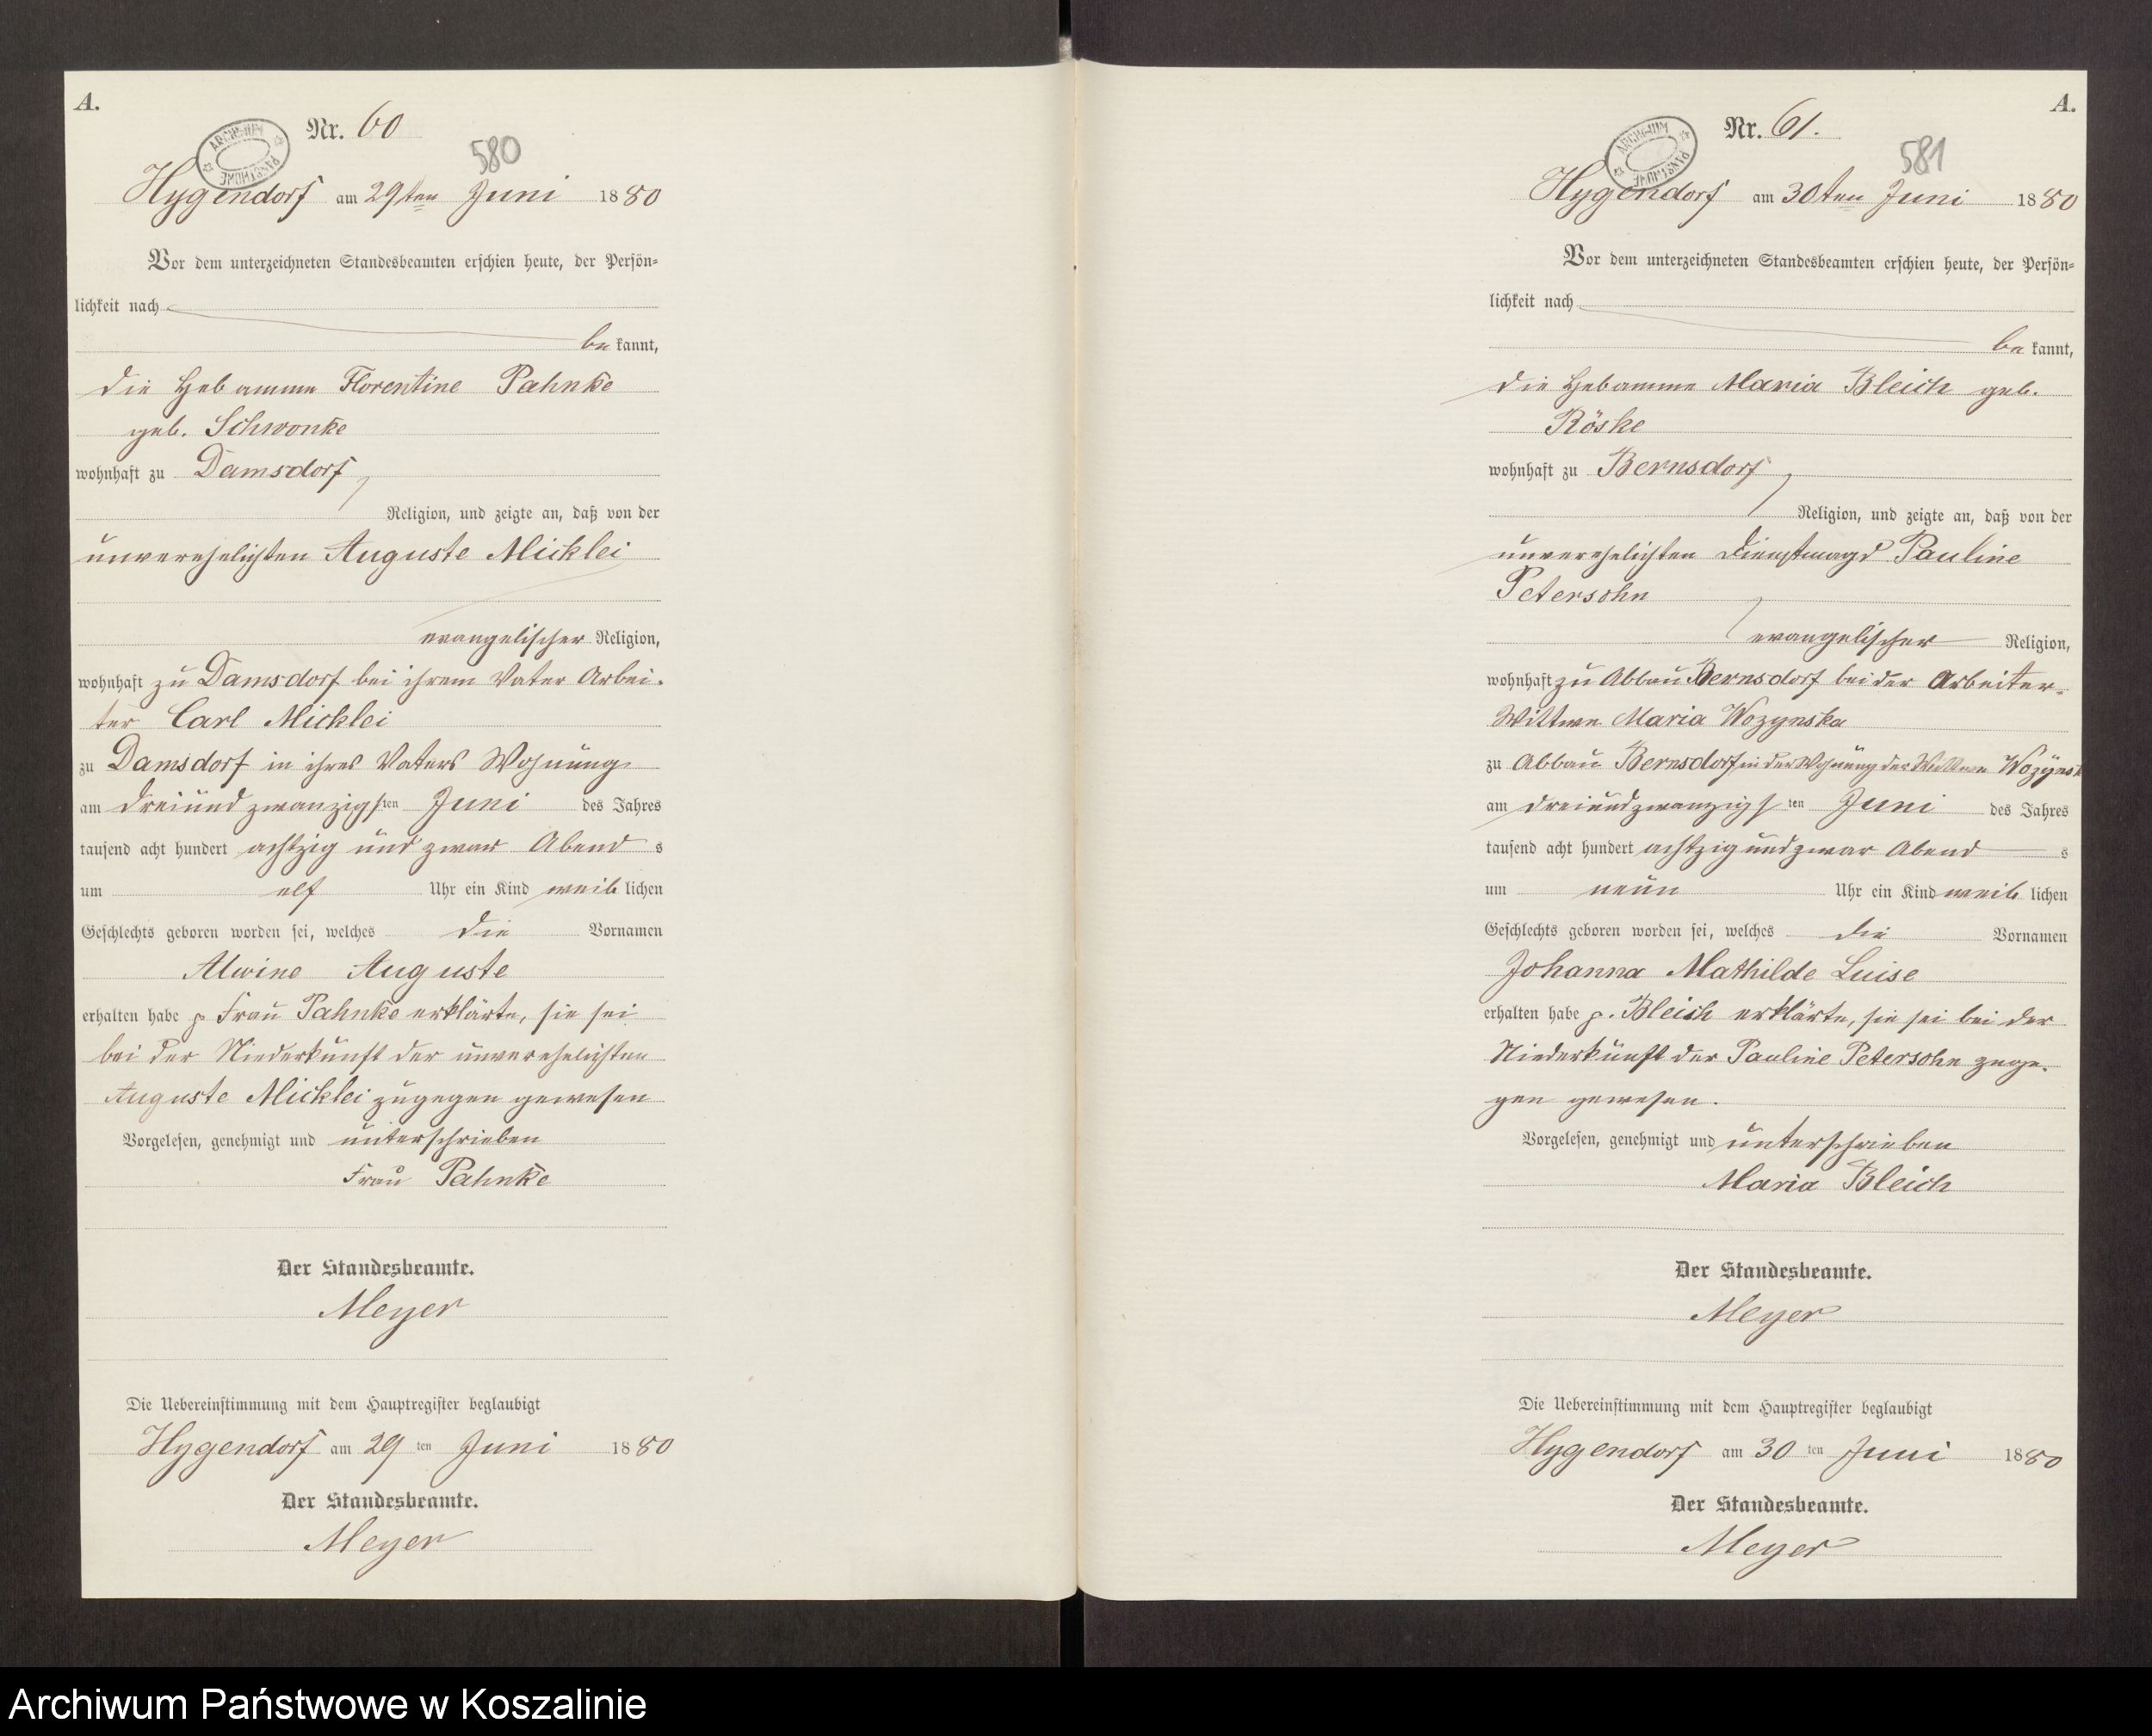 A.
Nr. 60
ARCHIWUM PAŃSTWOWE
580
Hygendorf am 29ten Juni 1880
Vor dem unterzeichneten Standesbeamten erschien heute, der Persön-
lichkeit nach
be kannt,
die Hebamme Florentine Pahnke
geb. Schwonke
wohnhaft zu Damsdorf
Religion, und zeigte an, daß von der
unverehelichten Auguste Micklei
evangelischer Religion,
wohnhaft zu Damsdorf bei ihrem Vater Arbei-
ter Carl Micklei
zu Damsdorf in ihres Vaters Wohnung
am dreiundzwanzigsten Juni des Jahres
tausend acht hundert achtzig und zwar Abend s
um elf Uhr ein Kind weib lichen
Geschlechts geboren worden sei, welches die Vornamen
Alwine Auguste
erhalten habe p Frau Pahnke erklärte, sie sei
bei der Niederkunft der unverehelichten
Auguste Micklei zugegen gewesen
Vorgelesen, genehmigt und unterschrieben
Frau Pahnke
Der Standesbeamte.
Meyer
Die Uebereinstimmung mit dem Hauptregister beglaubigt
Hygendorf am 29 ten Juni 1880
Der Standesbeamte.
Meyer
A.
Nr. 61.
ARCHIWUM PAŃSTWOWE
581
Hygendorf am 30ten Juni 1880
Vor dem unterzeichneten Standesbeamten erschien heute, der Persön-
lichkeit nach
be kannt,
die Hebamme Maria Bleich geb.
Röske
wohnhaft zu Bernsdorf
Religion, und zeigte an, daß von der
unverehelichten Dienstmagd Pauline
Petersohn
evangelischer Religion,
wohnhaft zu Abbau Bernsdorf bei der Arbeiter-
Wittwe Maria Wozynska
zu Abbau Bernsdorf in der Wohnung der Wittwe Wozynsk
am dreiundzwanzigs ten Juni des Jahres
tausend acht hundert achtzig und zwar Abend s
um neun Uhr ein Kind weib lichen
Geschlechts geboren worden sei, welches die Vornamen
Johanna Mathilde Luise
erhalten habe p. Bleich erklärte, sie sei bei der
Niederkunft der Pauline Petersohn zuge-
gen gewesen.
Vorgelesen, genehmigt und unterschrieben
Maria Bleich
Der Standesbeamte.
Meyer
Die Uebereinstimmung mit dem Hauptregister beglaubigt
Hygendorf am 30 ten Juni 1880
Der Standesbeamte.
Meyer
Archiwum Państwowe w Koszalinie